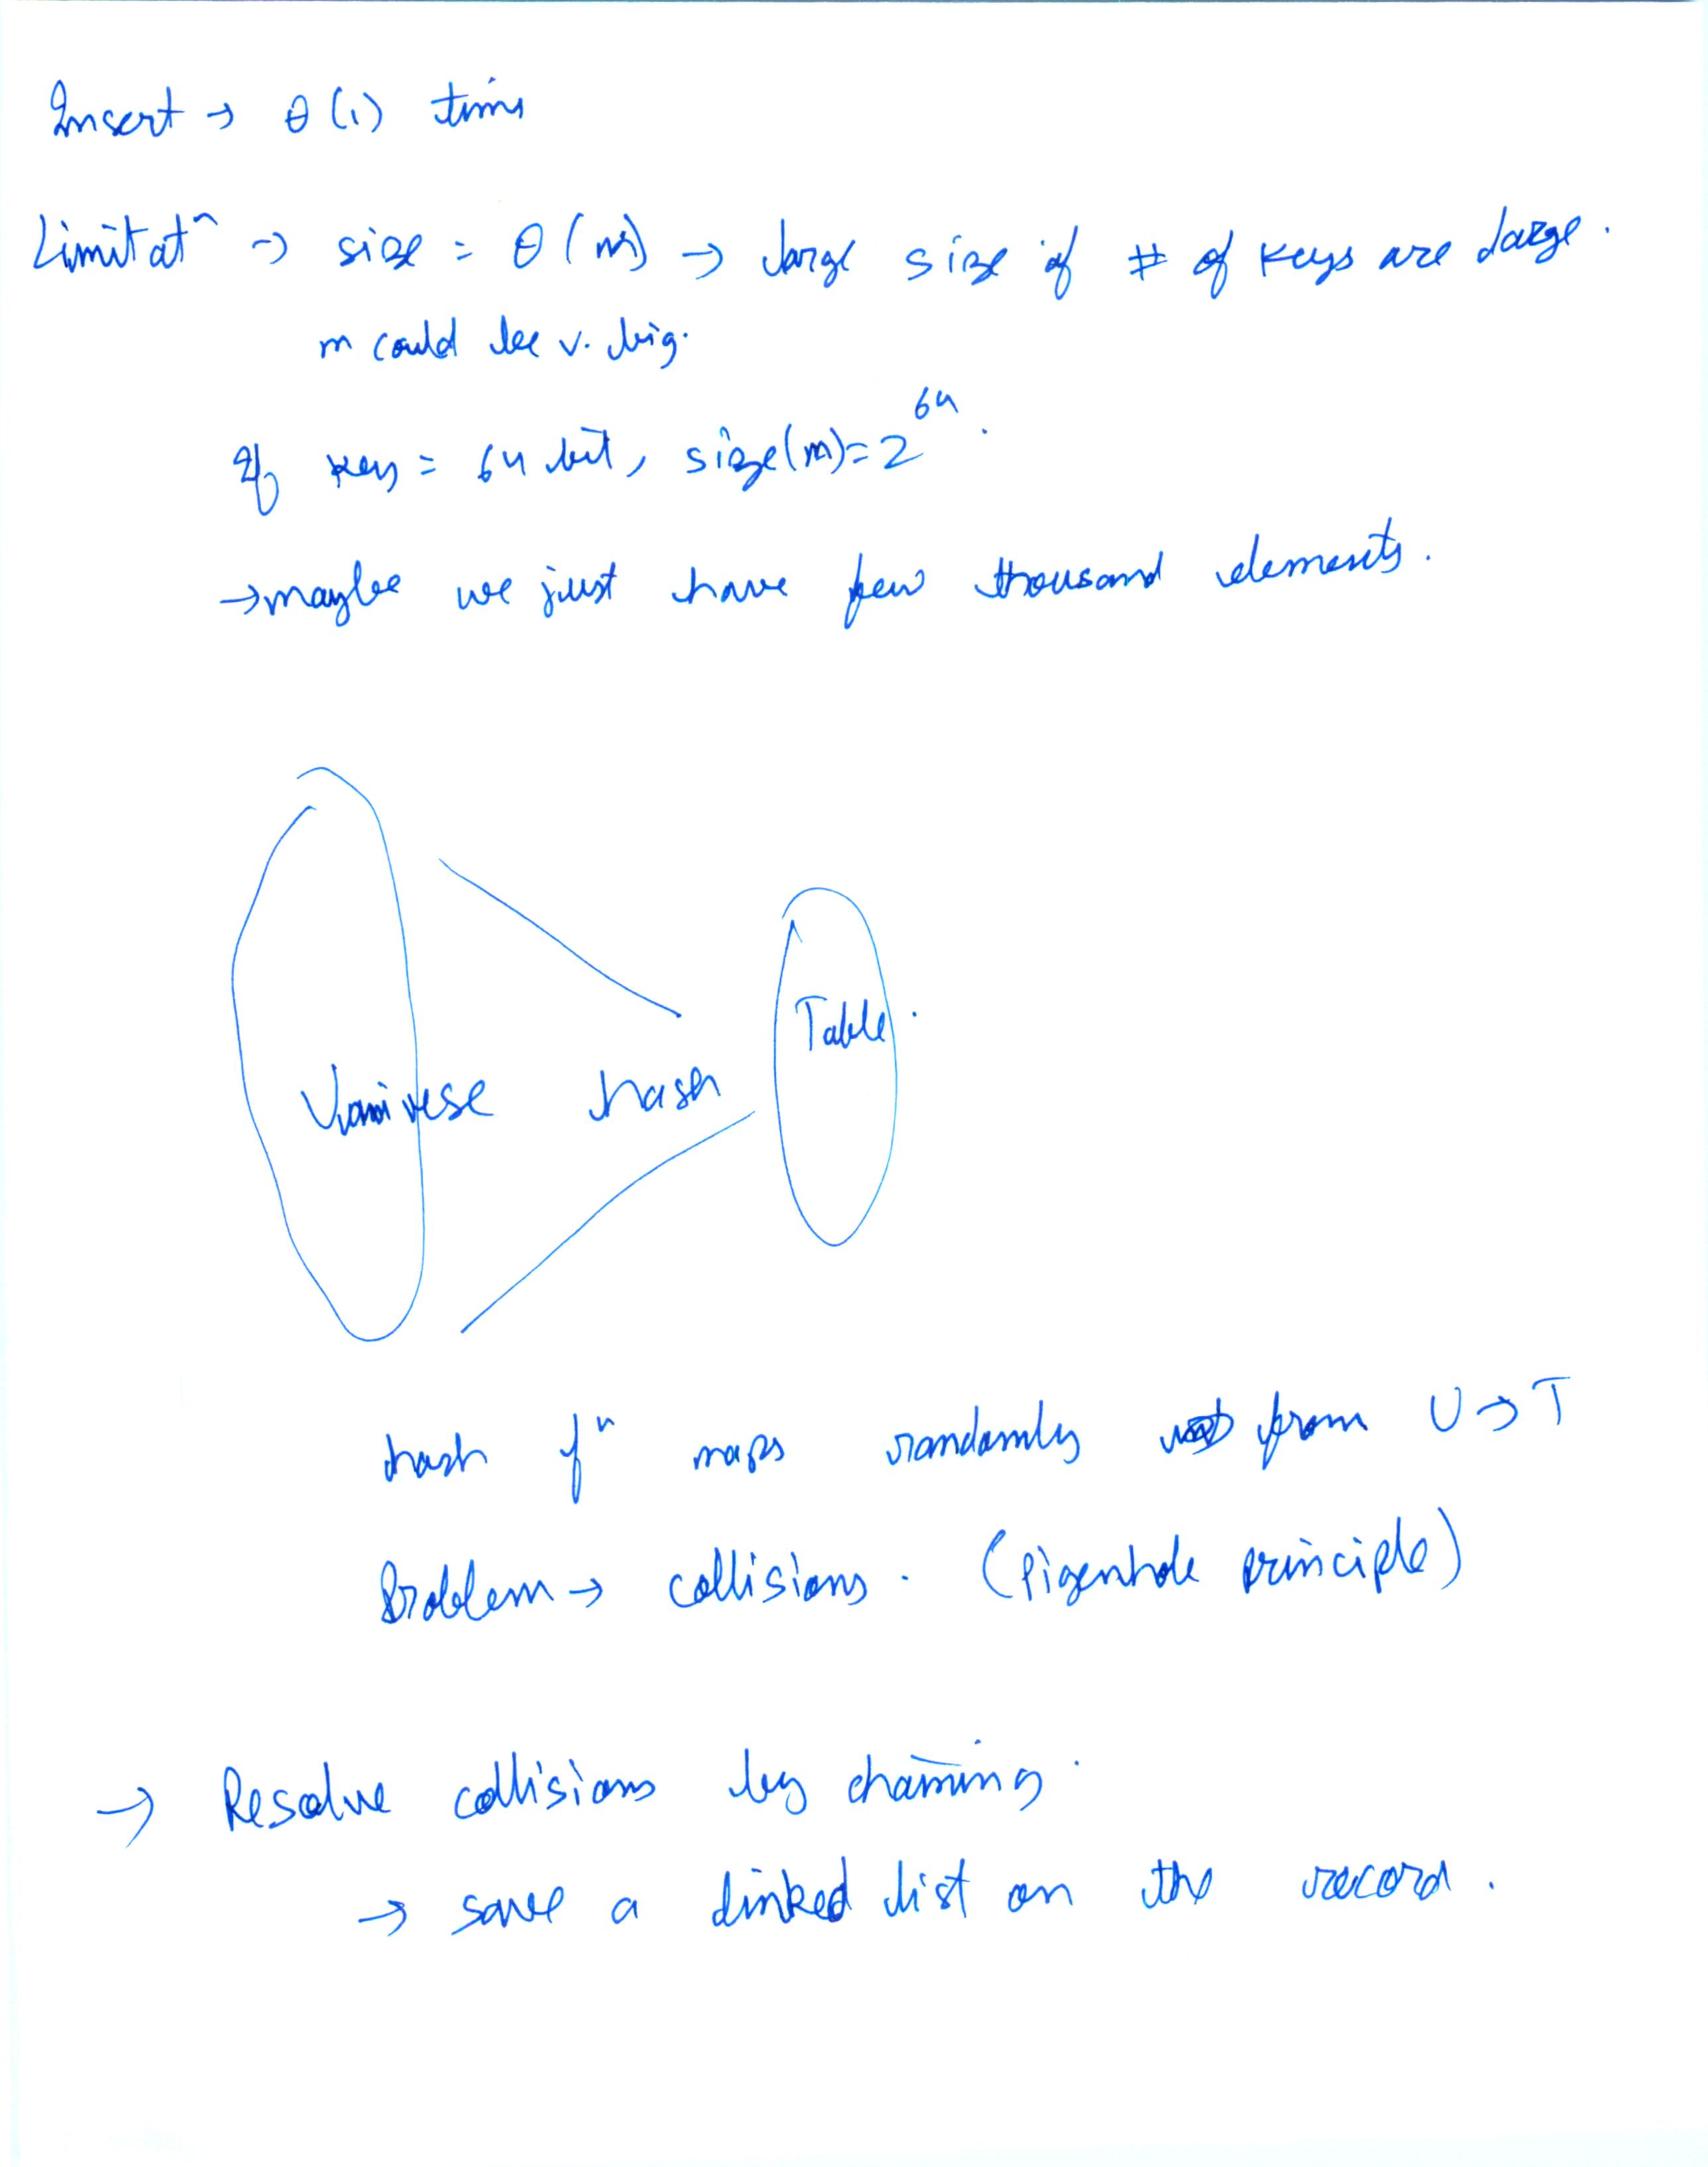 Insert → θ(1) time
Limitatⁿ → size = θ(m) → large size if # of keys are large.
m could be v. big.
If key = 64 bit, size(m) = 2^64.
→ maybe we just have few thousand elements.
Table.
Univese hash
hash fⁿ maps randomly from U → T
Problem → collisions. (Pigenhole principle)
→ Resolve collisions by chaining.
→ save a linked list on the record.